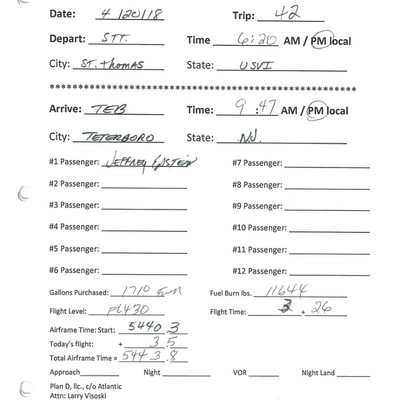 Date: 4/20/18 Trip: 42
Depart: STT. Time 6:20 AM / PM local
City: St. Thomas State: USVI
************************************************
Arrive: TEB Time: 9:47 AM / PM local
City: TETERBORO State: NJ.
#1 Passenger: Jeffrey Epstein #7 Passenger:
#2 Passenger: #8 Passenger:
#3 Passenger: #9 Passenger:
#4 Passenger: #10 Passenger:
#5 Passenger: #11 Passenger:
#6 Passenger: #12 Passenger:
Gallons Purchased: 1710 Fuel Burn lbs. 11644
Flight Level: FL430 Flight Time: 3 + 26
Airframe Time: Start: 5440.3
Today's flight: + 3.5
Total Airframe Time = 5443.8
Approach Night VOR Night Land
Plan D, llc., c/o Atlantic
Attn: Larry Visoski